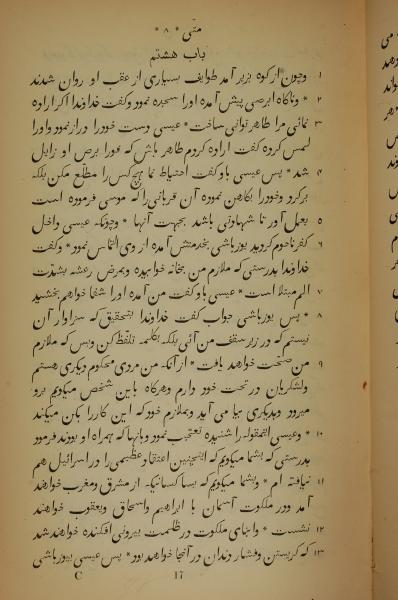 متی * ۸ *
باب هشتم
۱ وچون از کوه بزیر آمد طوایف بسیاری از عقب او روان شدند
۲ * وناکاه ابرصی پیش آمده اورا سجده نمود وکفت خداوندا اکر اراده
۳ نمائی مرا طاهر توانی ساخت * عیسی دست خودرا دراز نمود واورا
لمس کرده کفت اراده کردم طاهر باش که فورا برص او زایل
۴ شد * پس عیسی باو کفت احتیاط نما هیچ کس را مطلع مکن بلکه
برکرد وخودرا بکاهن نموده آن قربانی را که موسی فرموده است
۵ بعمل آور تا شهادتی باشد بجهت آنها * وچونکه عیسی داخل
۶ کفرناحوم کردید یوزباشی بخدمتش آمده از وی التماس نمود * وکفت
خداوندا بدرستی که ملازم من بخانه خوابیده وبمرض رعشه بشدت
۷ الم مبتلا است * عیسی باو کفت من آمده اورا شفا خواهم بخشید
۸ * پس یوزباشی جواب کفت خداوندا بتحقیق که سزاوار آن
نیستم که در زیر سقف من آئی بلکه بکلمه تلفظ کن وبس که ملازم
۹ من صحت خواهد یافت * از آنکه من مردی محکوم دیکری هستم
ولشکریان در تحت خود دارم وهرکاه باین شخص میکویم برو
میرود وبدیکری بیا می آید وبملازم خود که این کاررا بکن میکند
۱۰ * وعیسی المقوله را شنیده تعجب نمود وبآنها که همراه او بودند فرمود
بدرستی که بشما میکویم که اینچنین اعتقاد عظیمی را در اسرائیل هم
۱۱ نیافته ام * وبشما میکویم که بسا کسانیکه از مشرق ومغرب خواهند
آمد ودر ملکوت آسمان با ابراهیم واسحاق ویعقوب خواهند
۱۲ نشست * وابنای ملکوت در ظلمت بیرونی افکنده خواهند شد
۱۳ که کریستن وفشار دندان در آنجا خواهد بود * پس عیسی بیوزباشی
C 17